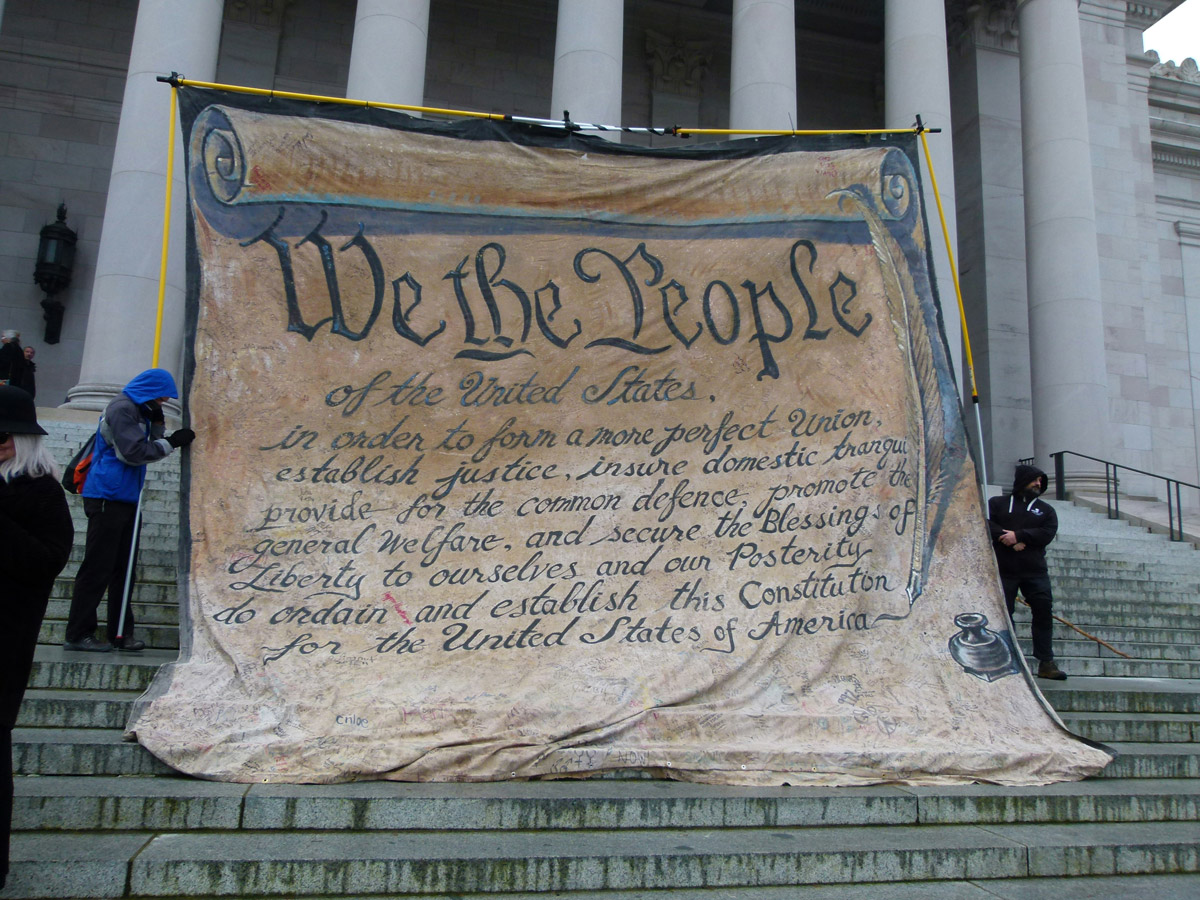 We the People
of the United States,
in order to form a more perfect Union,
establish justice, insure domestic tranqui
provide for the common defence, promote the
general Welfare, and secure the Blessings of
Liberty to ourselves and our Posterity
do ordain and establish this Constitution
for the United States of America
chloe
NOW